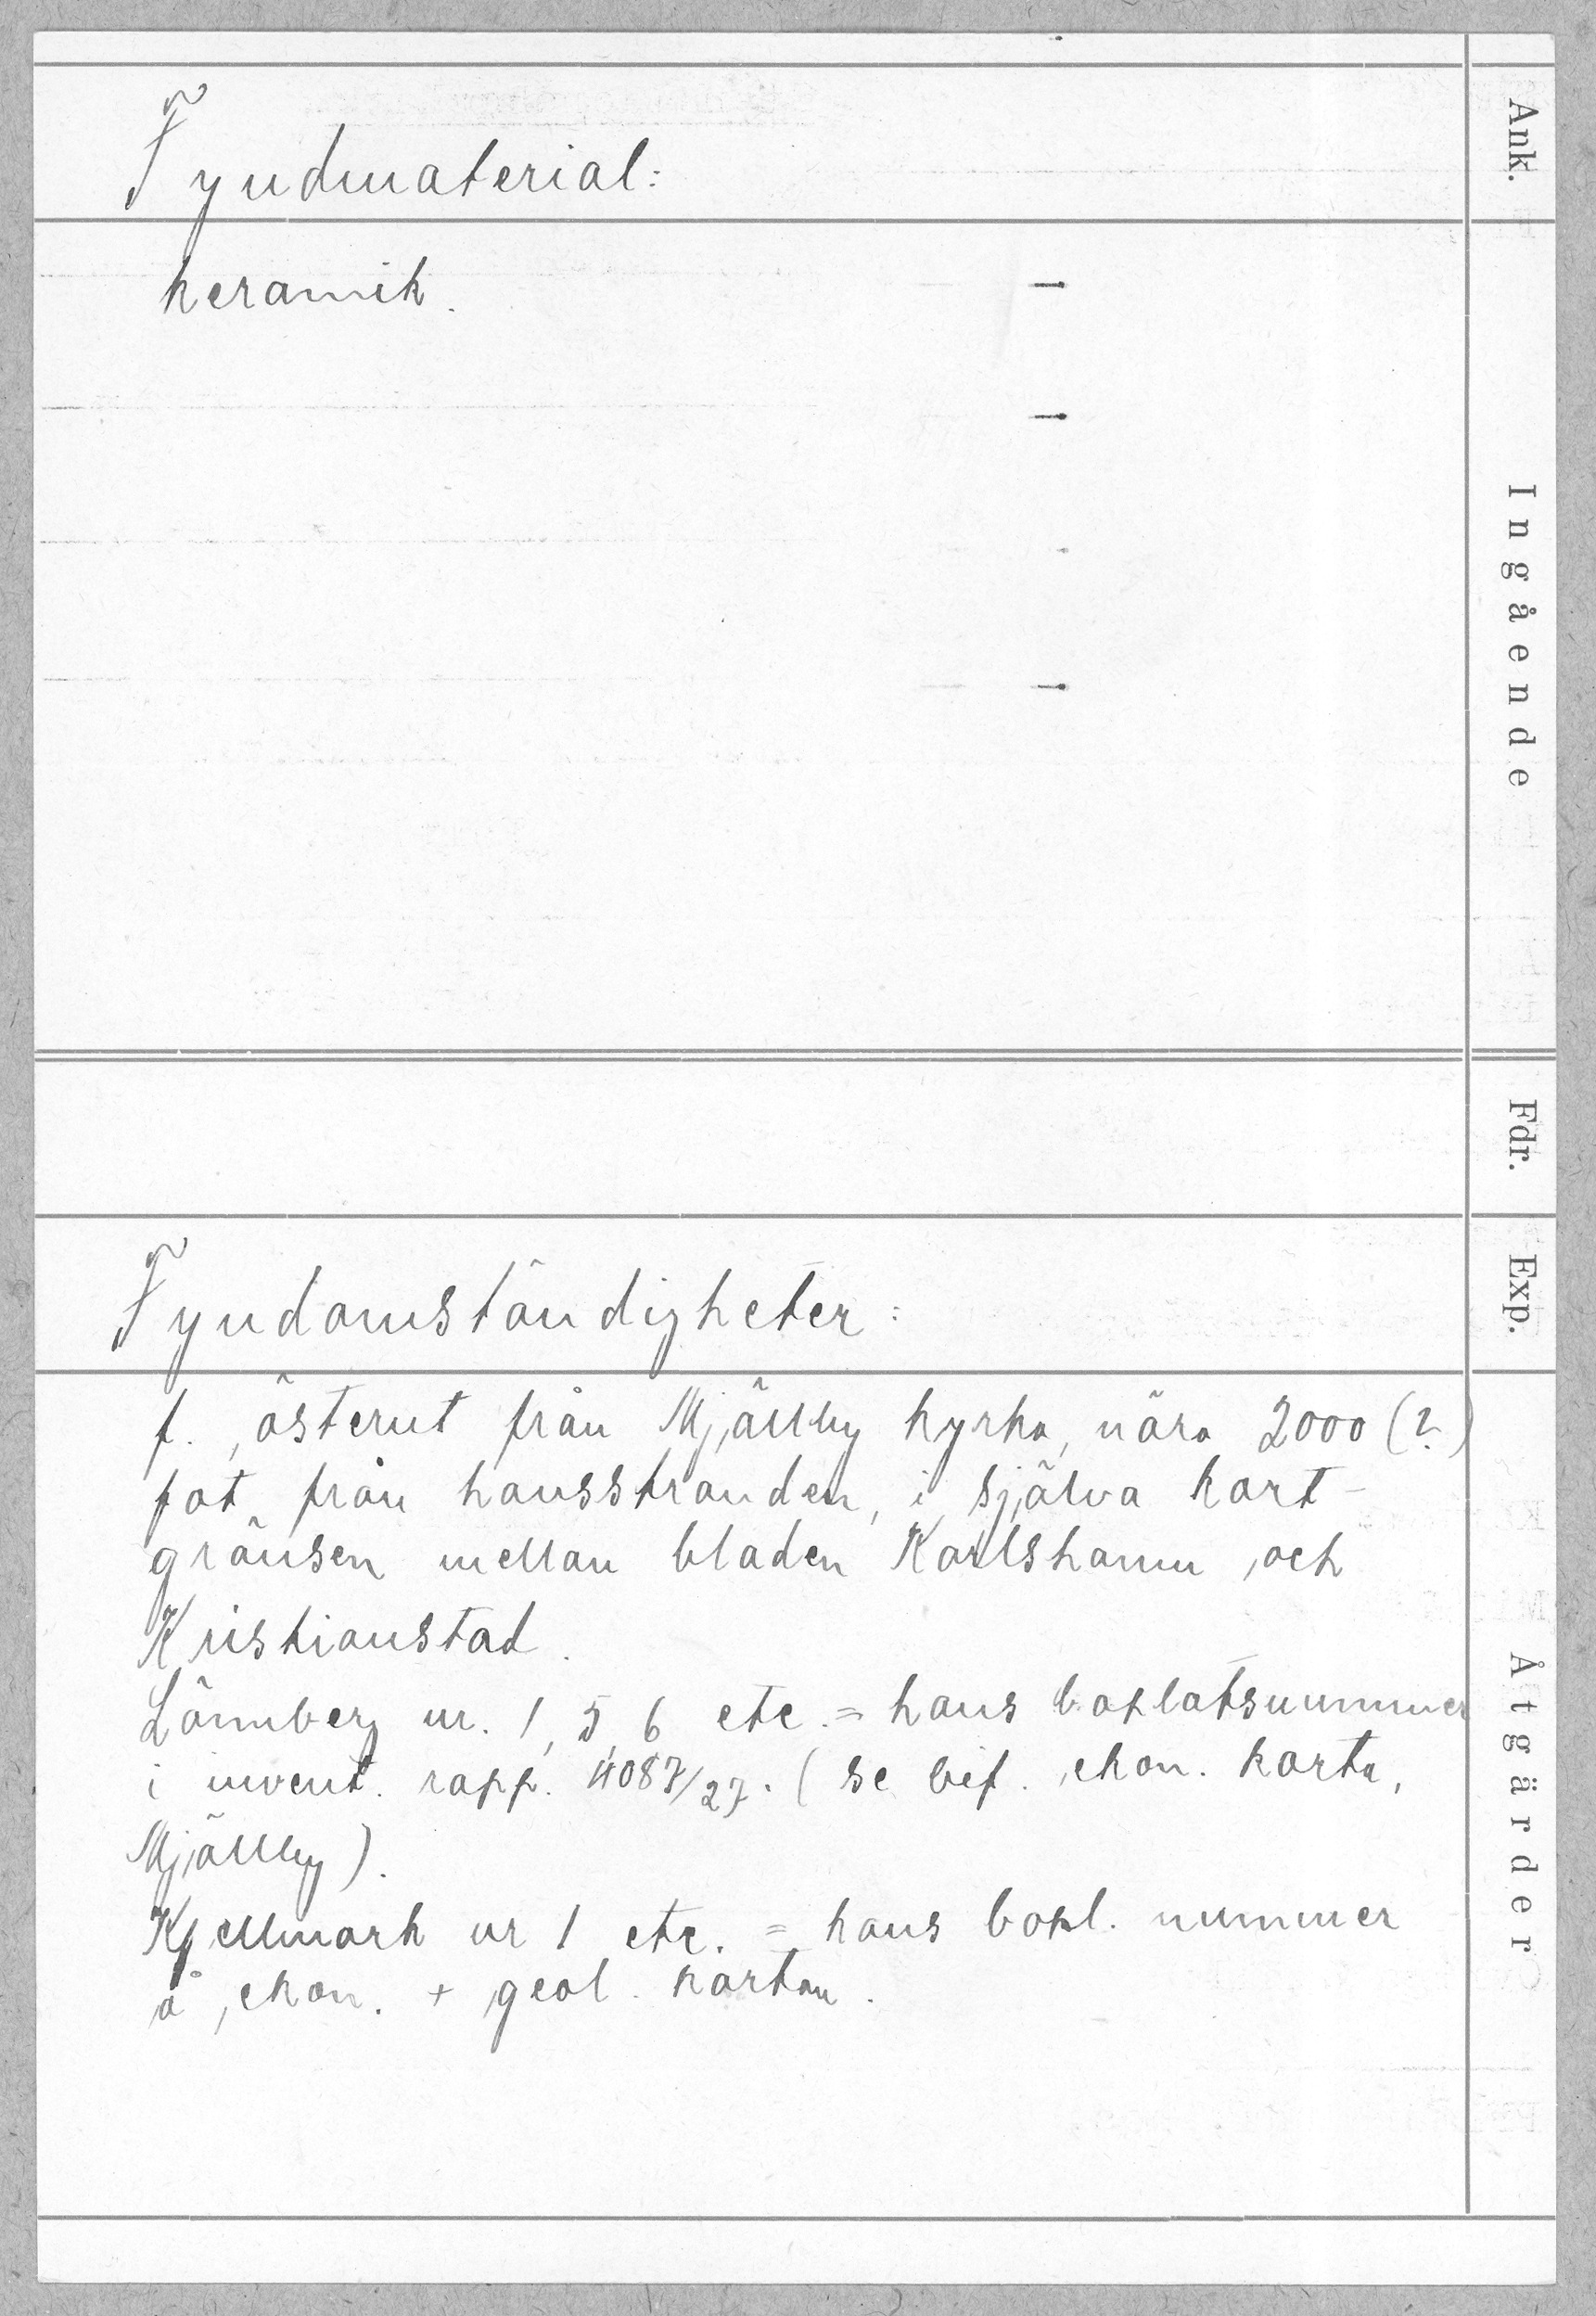 Fyndmaterial:
keramik.
Fyndomständigheter:
f. österut från Mjällby kyrka, nära 2000 (?)
fot från havsstranden, i själva kart-
gränsen mellan bladen Karlshamn och
Kristianstad.
Lönnberg nr. 1, 5, 6 etc. = hans boplatsnummer
i invent. rapp. 4087/27. (se bif. ekon. karta,
Mjällby).
Kjellmark nr 1 etc. = hans bopl. nummer
å ekon. + geol. kartan.
Ank.
Ingående
Fdr.
Exp.
Åtgärder